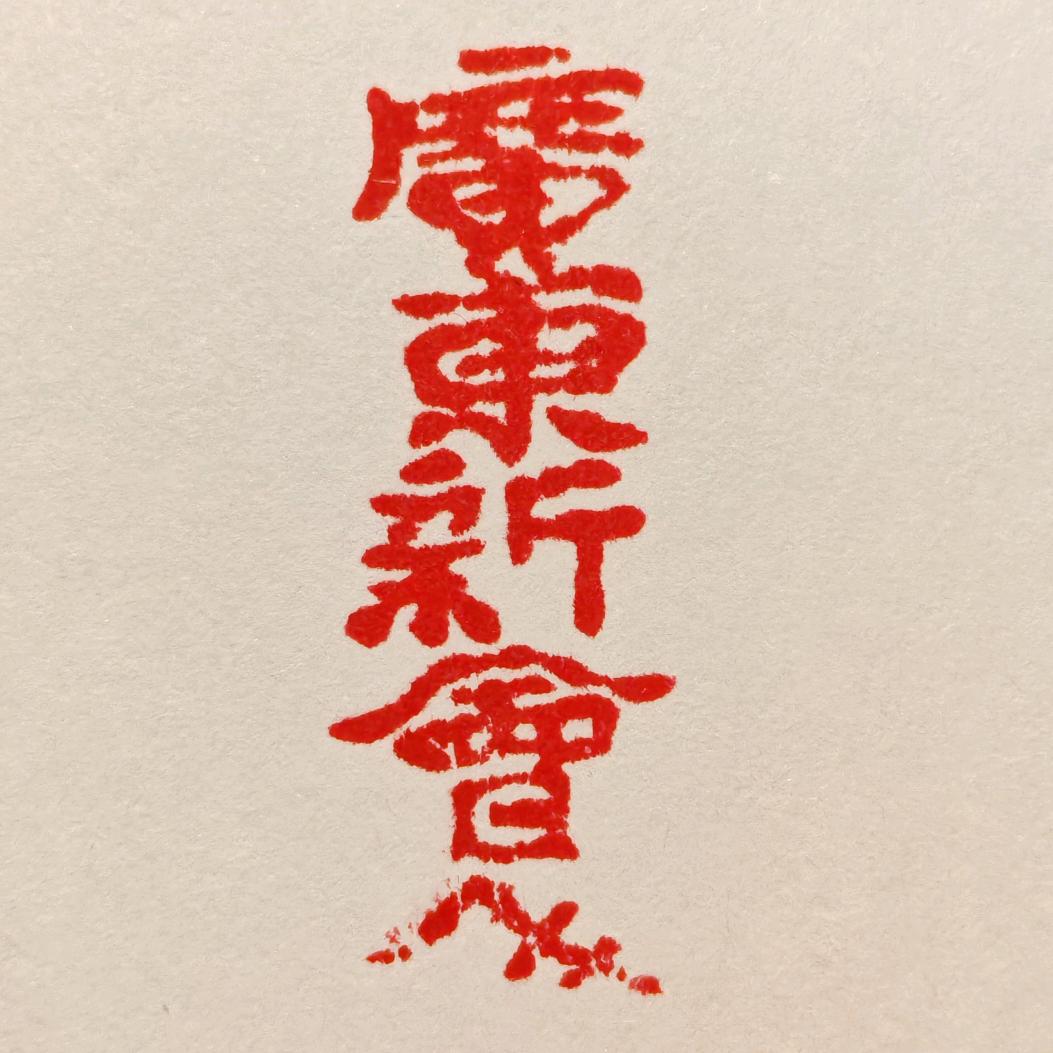 廣東新會人